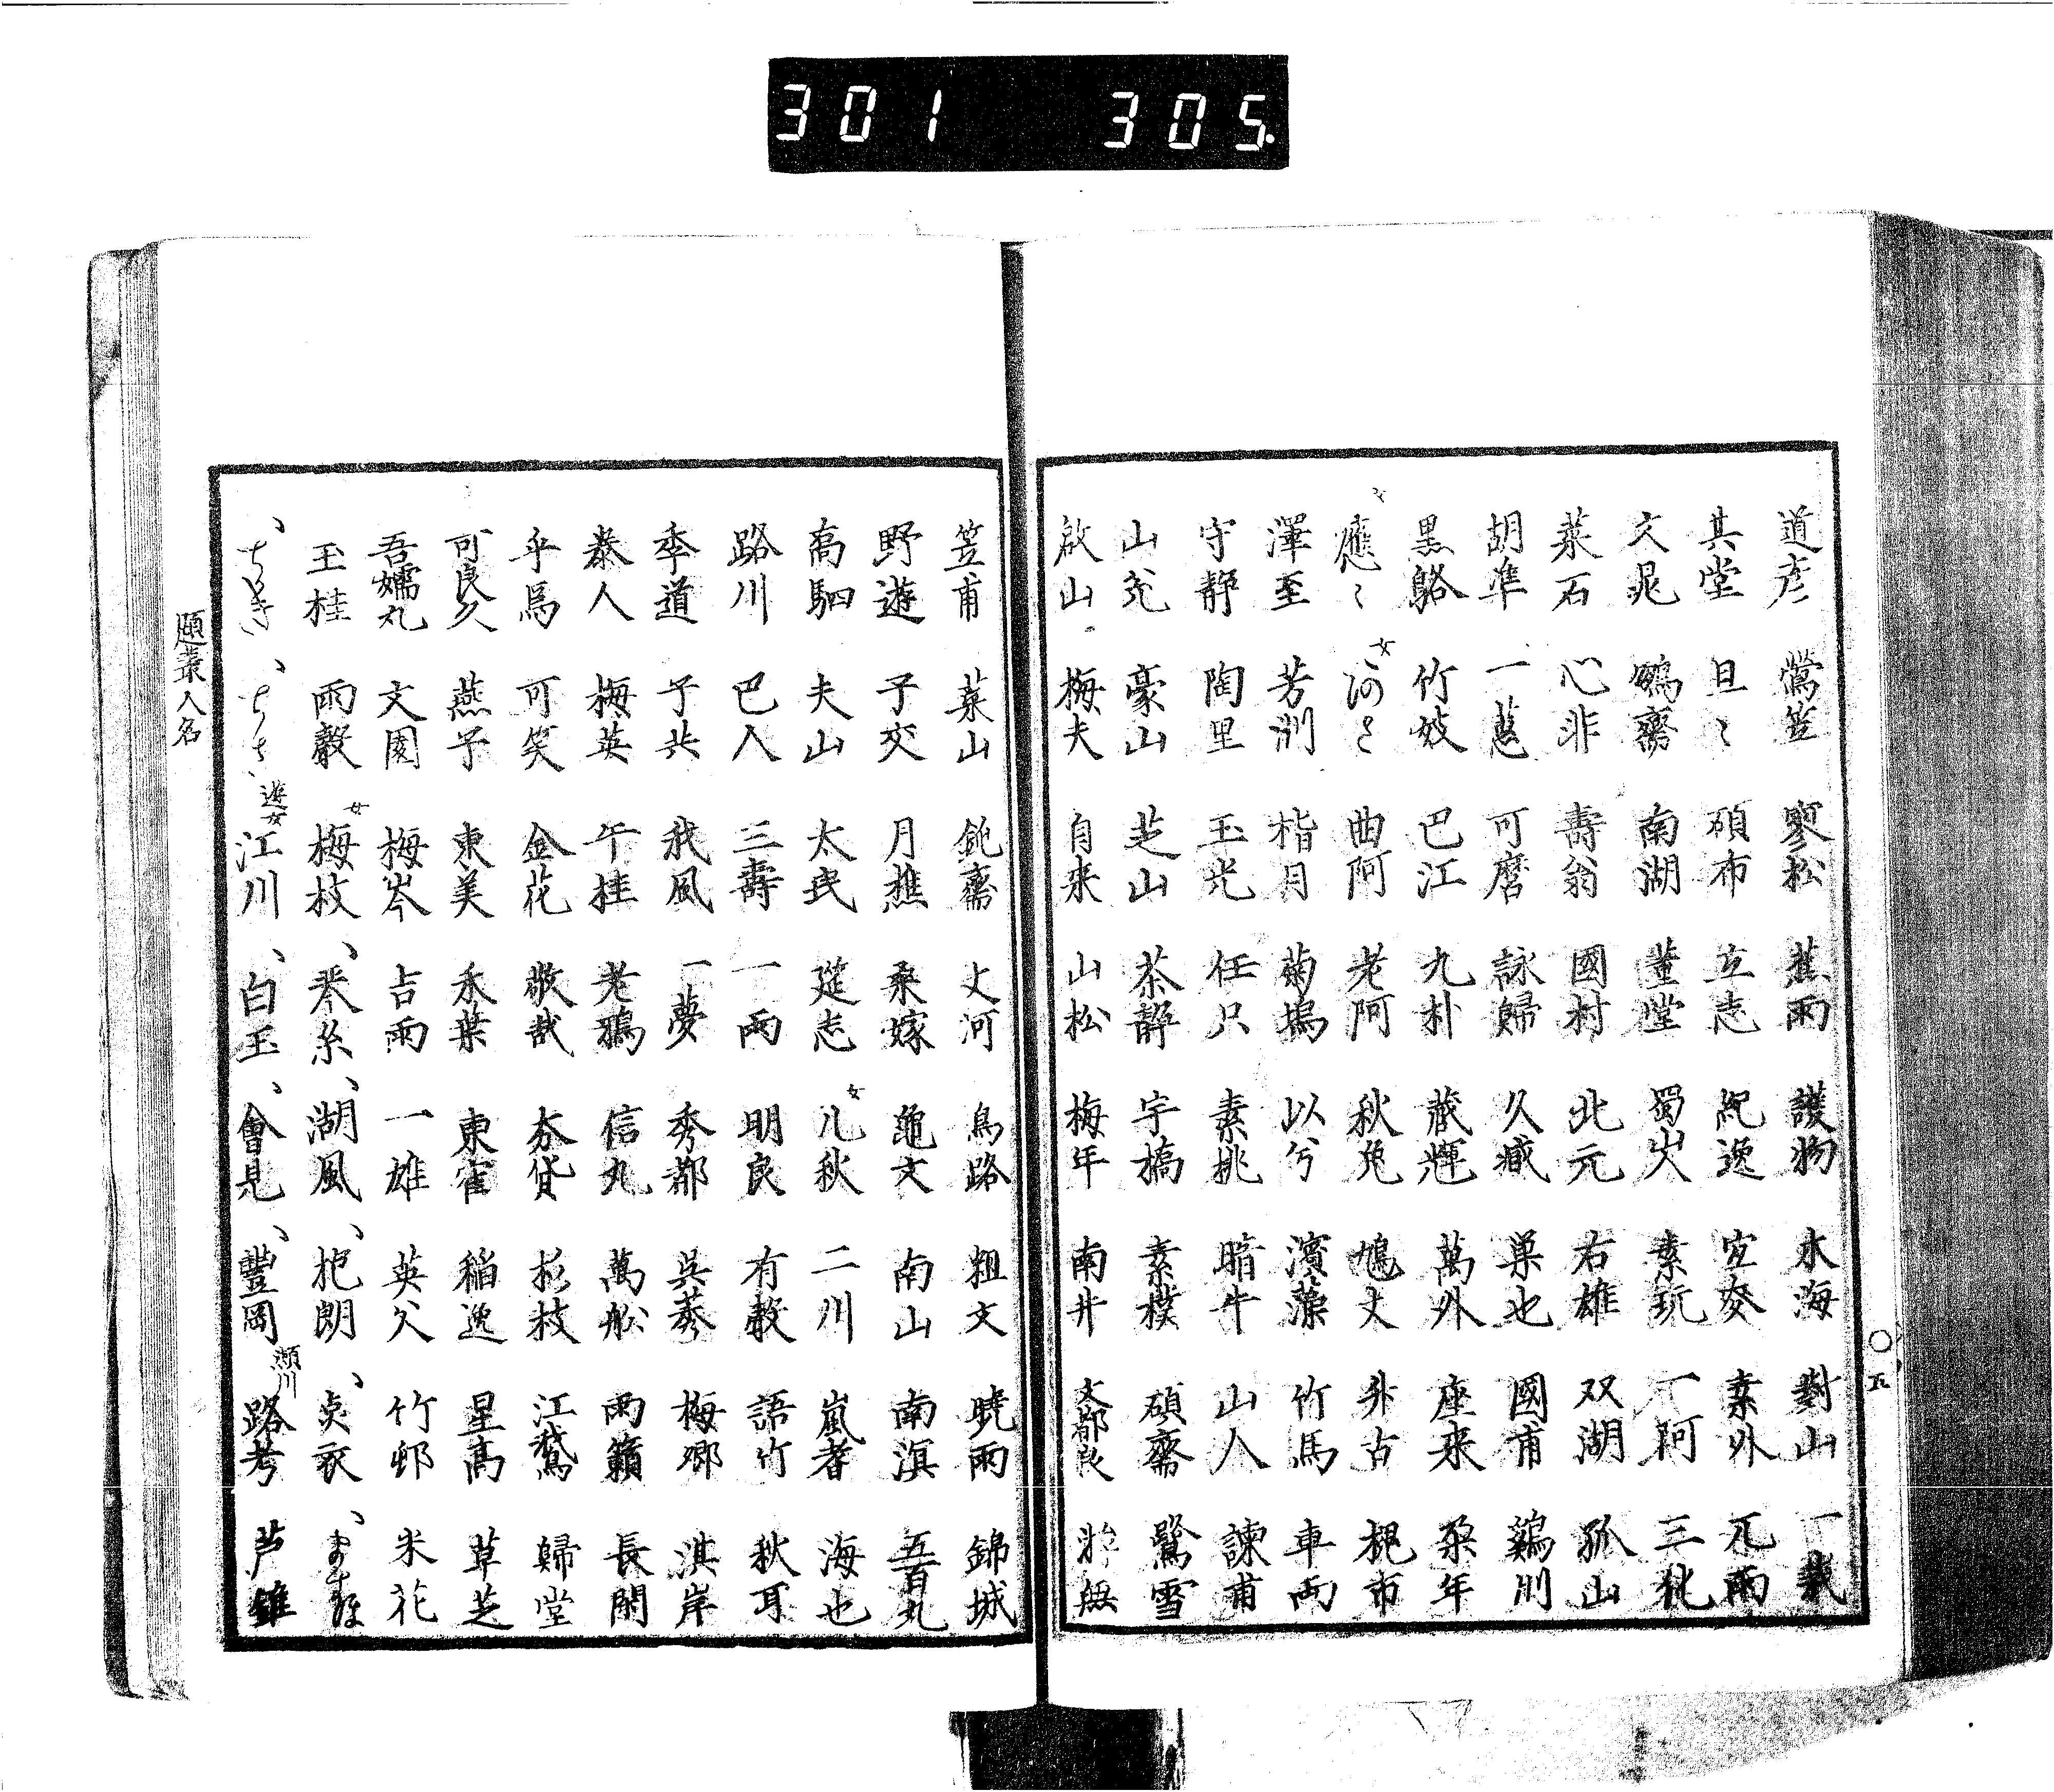 301 305.
道彦 鶯笠 寥松 蕉雨 護物 水海 對山 一峩
其堂 旦〻 碩布 立志 紀逸 宜麥 素外 兀雨
文晁 鵬齋 南湖 董堂 蜀山人 素玩 一阿 三化
菜石 心非 壽翁 國村 北元 右雄 双湖 孤山
胡準 一蕙 可麿 詠歸 久臧 巣也 國甫 鷄川
黒貉 竹妓 巴江 九朴 蔵輝 萬外 座来 柔年
女 應〻 女 河さ 曲阿 老阿 秋兔 鳩丈 升古 槐市
澤至 芳洲 楷月 菊塢 以兮 濱藻 竹馬 車両
守静 陶里 玉光 任只 素桃 暗牛 山人 諫甫
山尭 豪山 芝山 茶静 宇橋 素檏 碩齋 鷺雪
啟山 梅夫 自来 山松 梅年 南井 文都良
笠甫 菜山 鈍齋 丈河 鳥路 粗文 暁雨 錦城
野遊 子交 月樵 桑嫁 亀文 南山 南溟 五百丸
喬駟 夫山 太呉 莚志 女 几秋 二川 嵐者 海也
路川 巴人 三壽 一雨 明良 有穀 語竹 秋耳
季道 子共 我風 一夢 秀都 呉蓼 梅郷 淇岸
泰人 梅英 午桂 老鴉 信丸 萬船 雨籟 長閑
乎馬 可笑 金花 敬哉 夯貸 杉枝 江鵞 歸堂
可良久 燕子 東美 禾葉 東雀 稲逸 星高 草芝
吾嬬丸 文園 梅岑 占雨 一雄 英父 竹邨 米花
玉桂 雨轂 女 梅枝 、琴糸 、湖風 、杷朗 、貞衣
遊女 江川 、白玉 、會見 、豊岡 瀬川 路考 芦錐
題叢人名
〇五